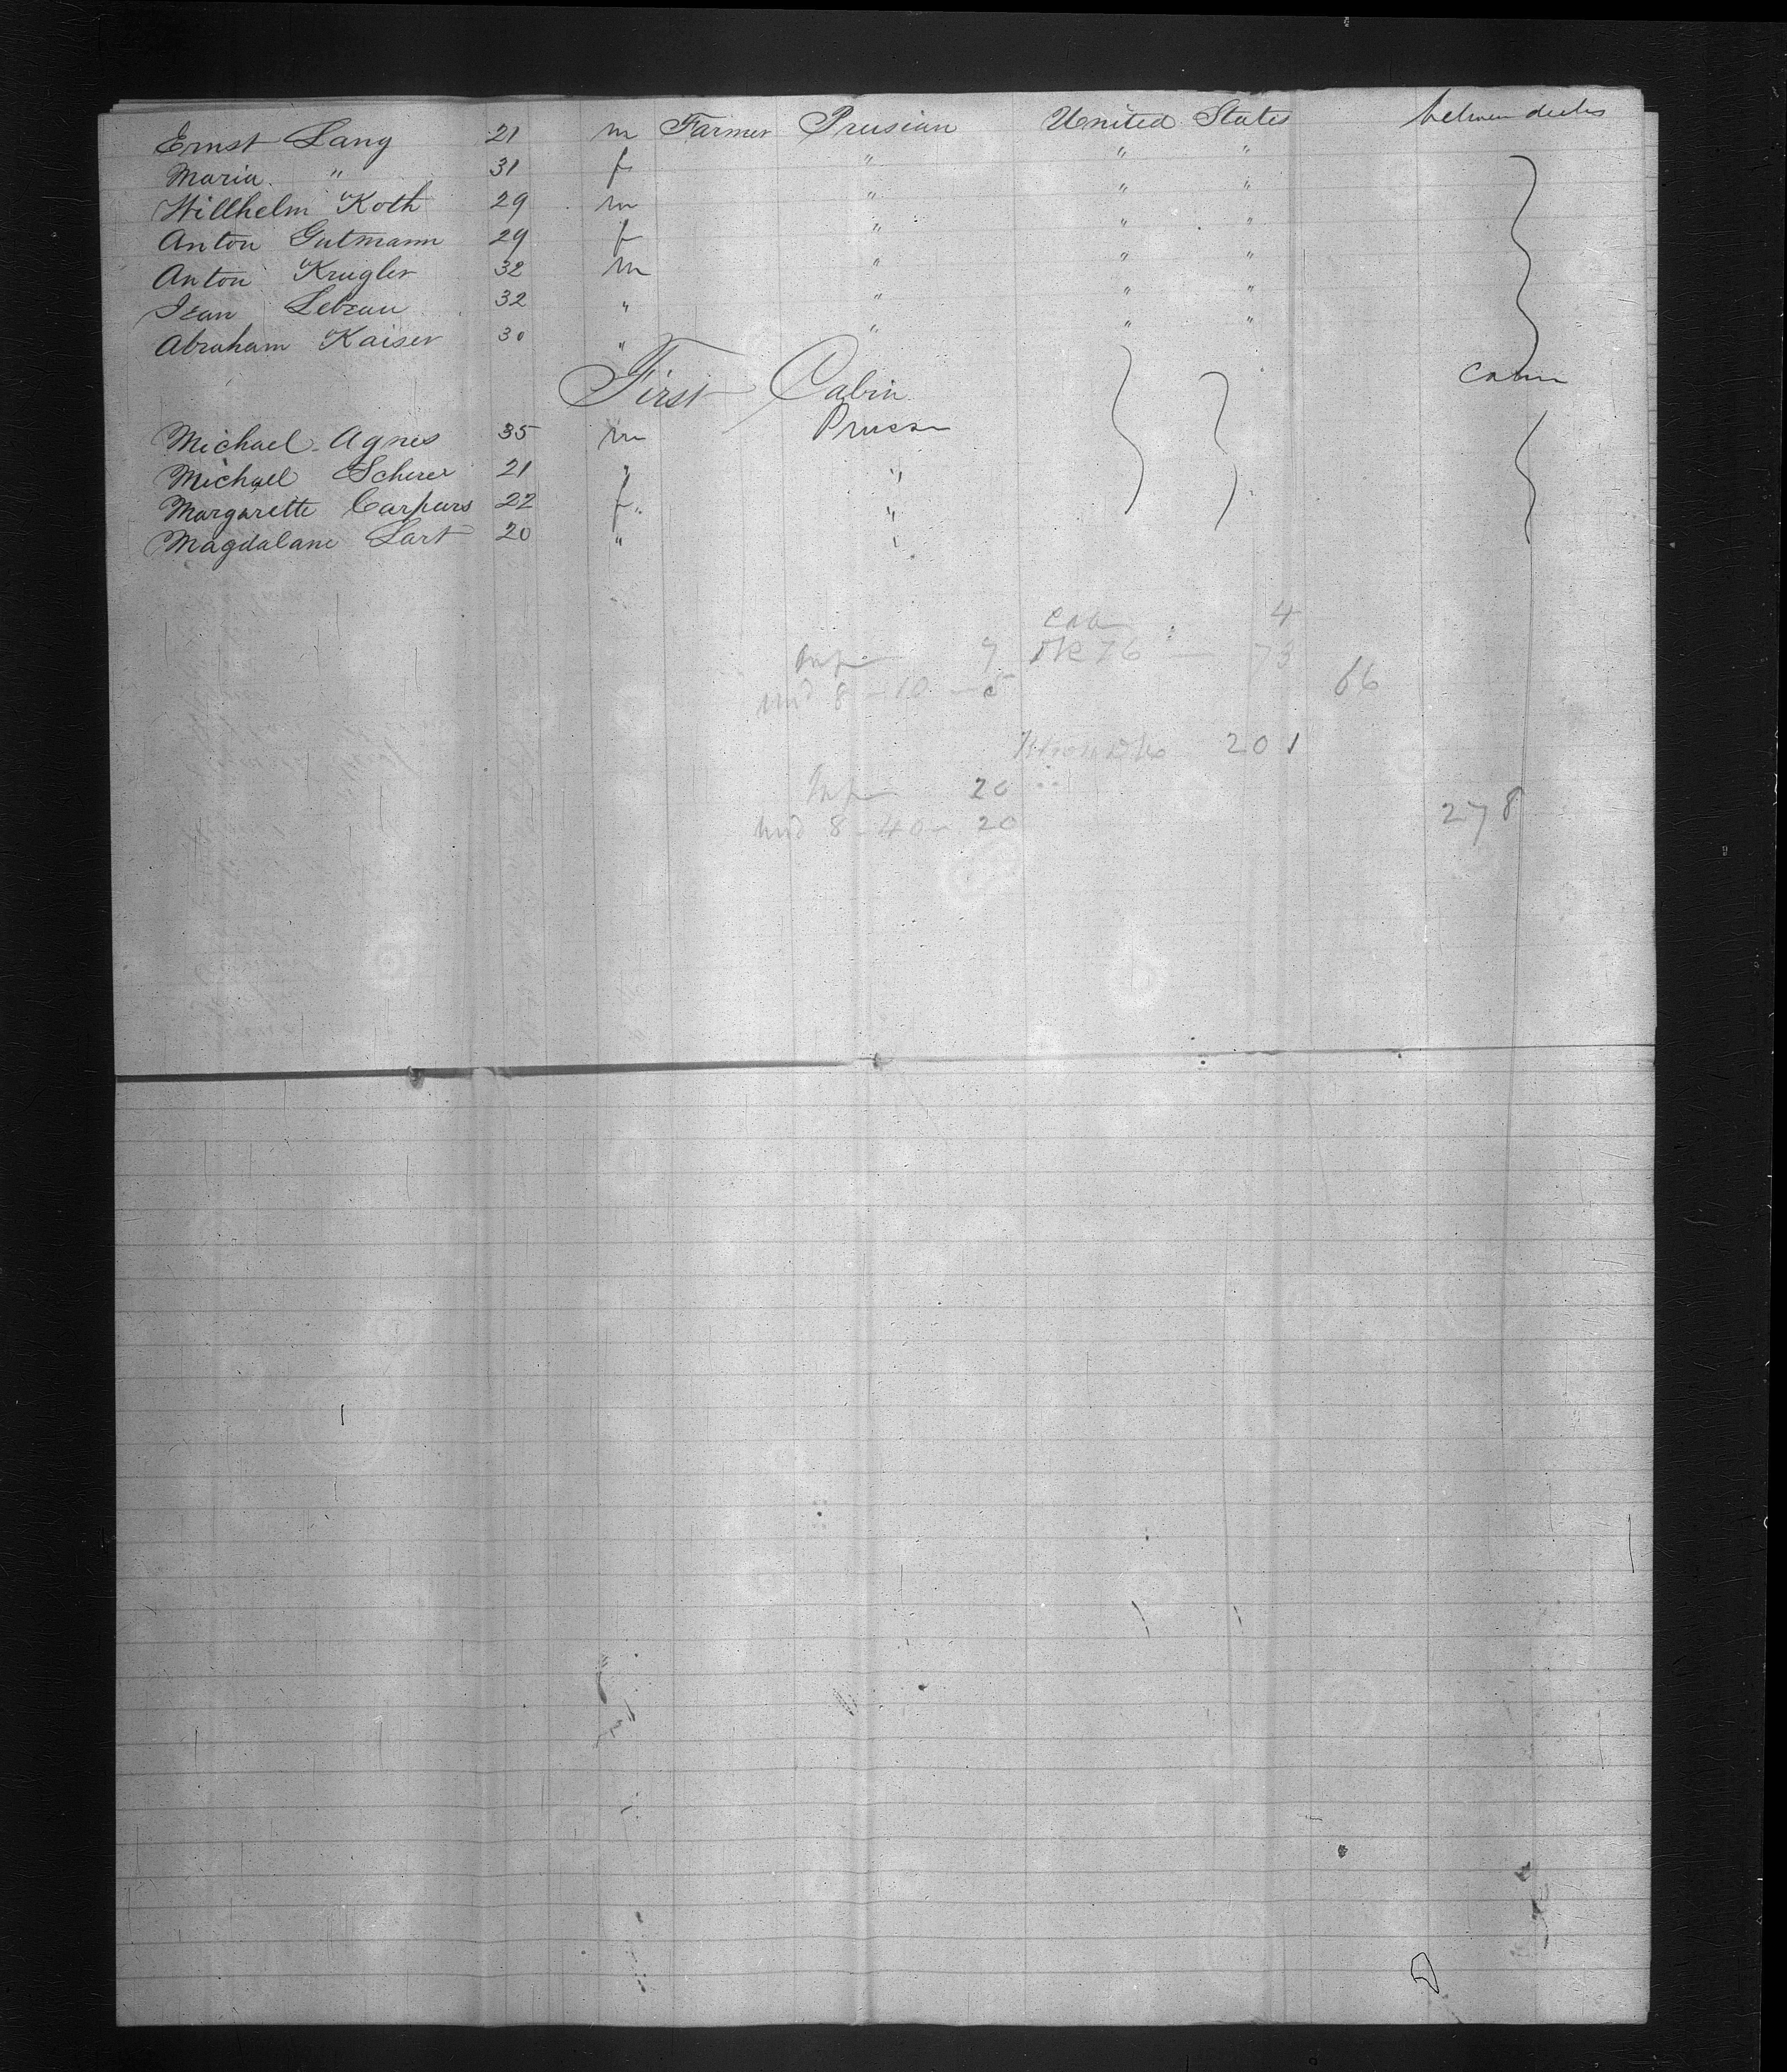 Ernst Lang 21 m Farmer Prusian United States between decks
Maria " 31 f " " "
Willhelm Koth 29 m " " "
Anton Gutmann 29 f " " "
Anton Krugler 32 m " " "
Jean Lebeau 32 " " " "
Abraham Kaiser 30 " " " "
First Cabin Cabin
Michael Agnes 35 m Prussn
Michael Scherer 21 " "
Margarette Carpurs 22 f "
Magdalane Lart 20 " "
Cab 4
Inf 7 76 73
und 8 - 10 - 5 66
201
Inf 20
und 8 - 40 - 20 278